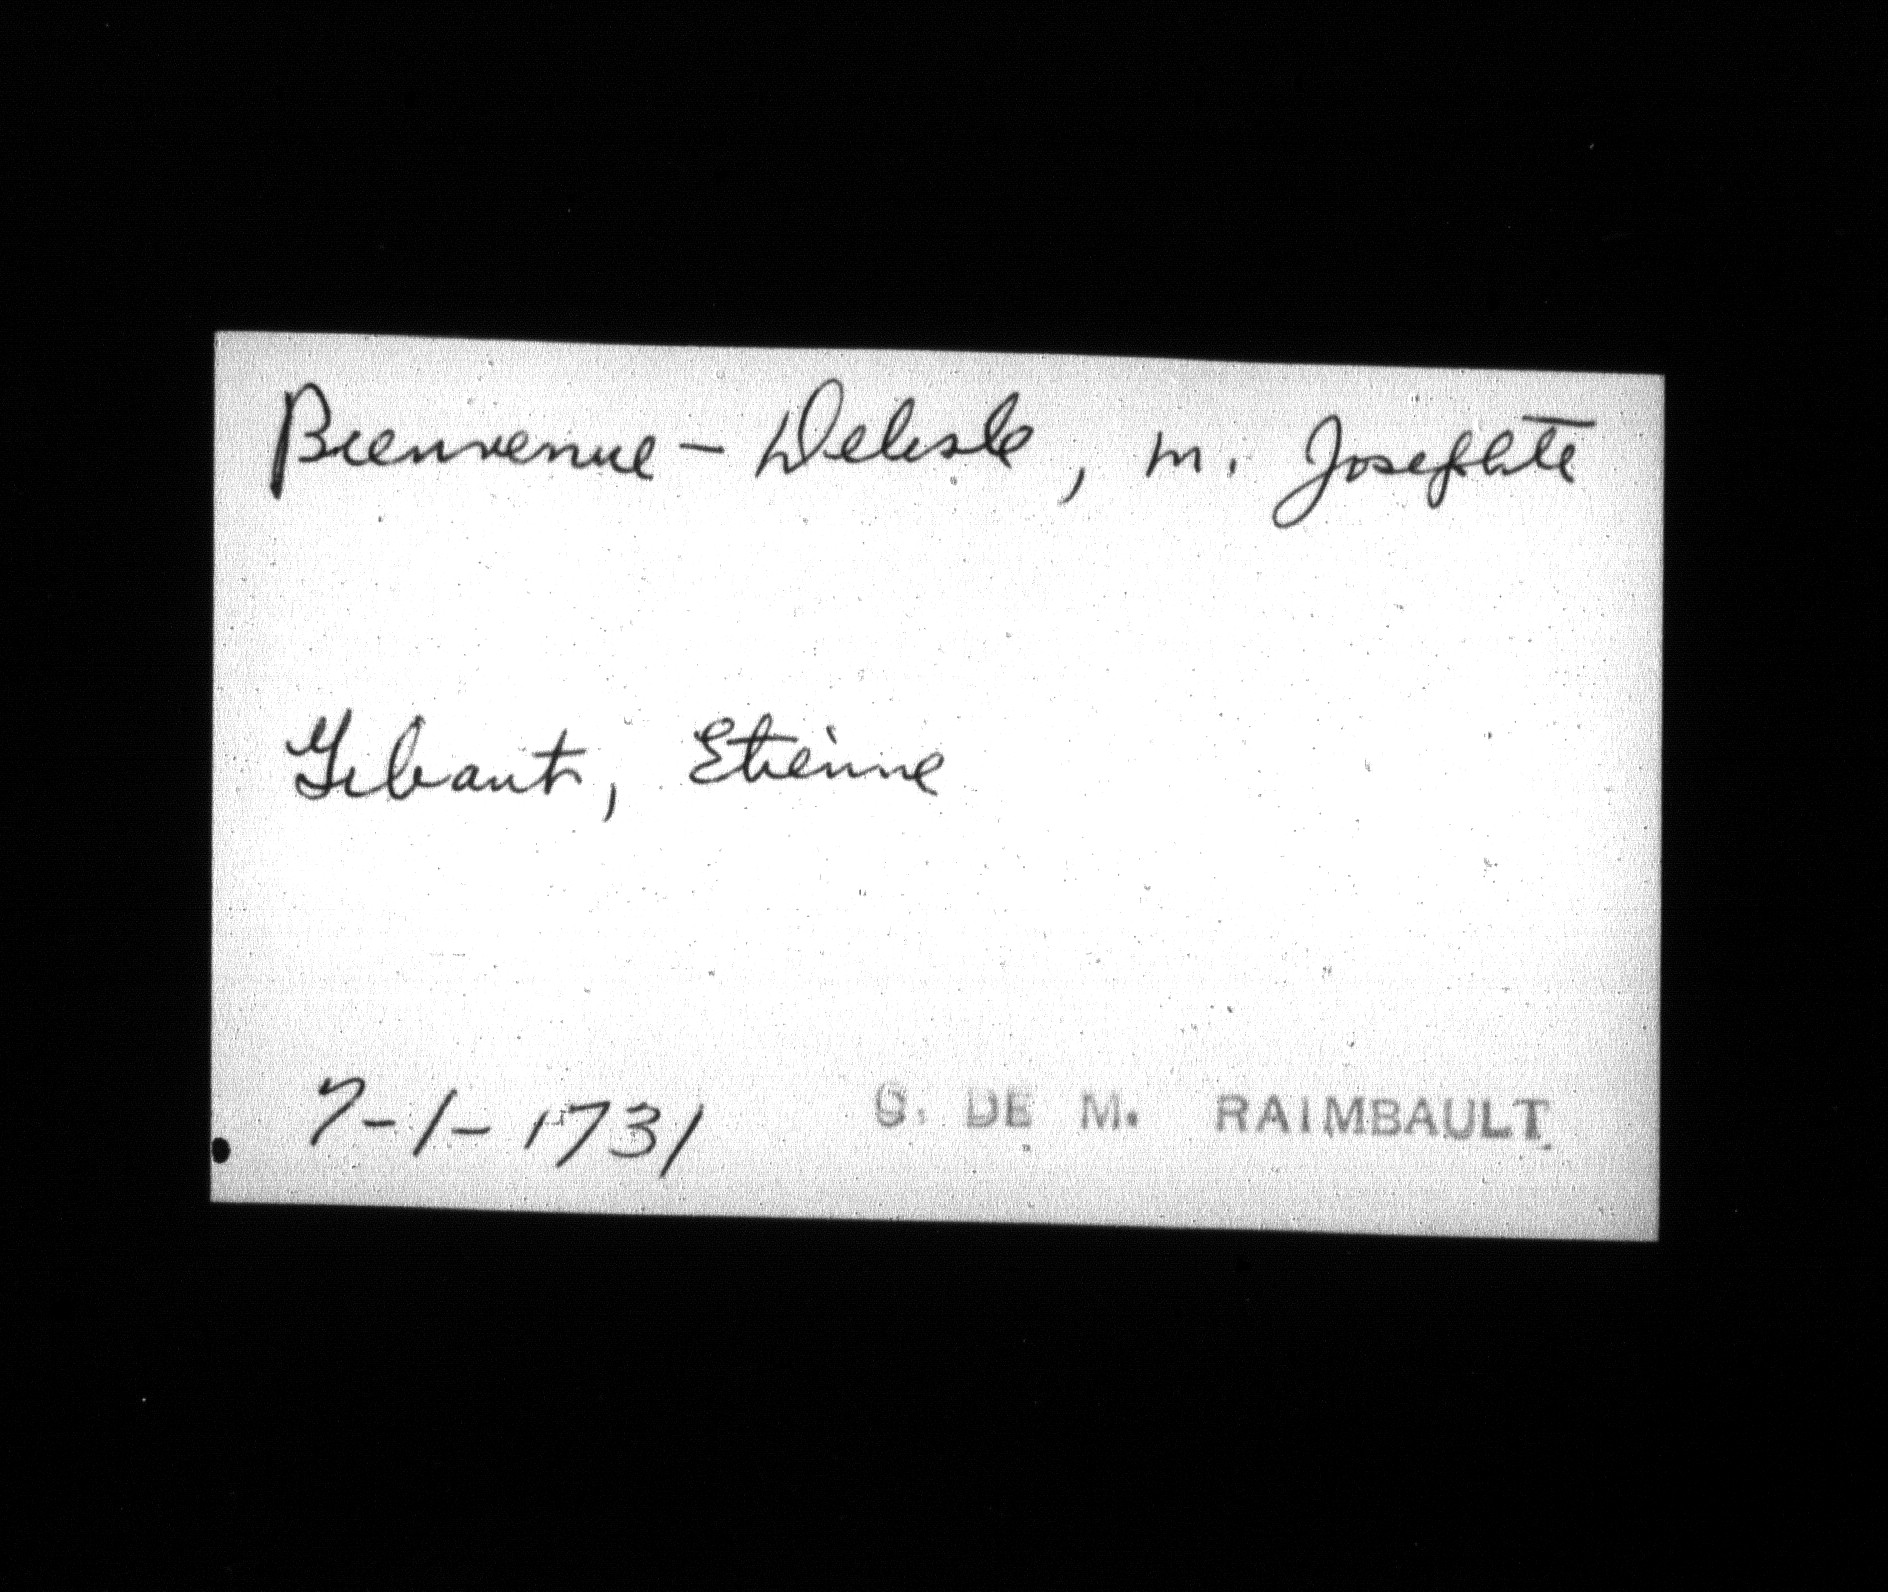 Bienvenue - Delisle, m. Josephte
Gibaut, Etienne
7-1-1731 C. DE M. RAIMBAULT.